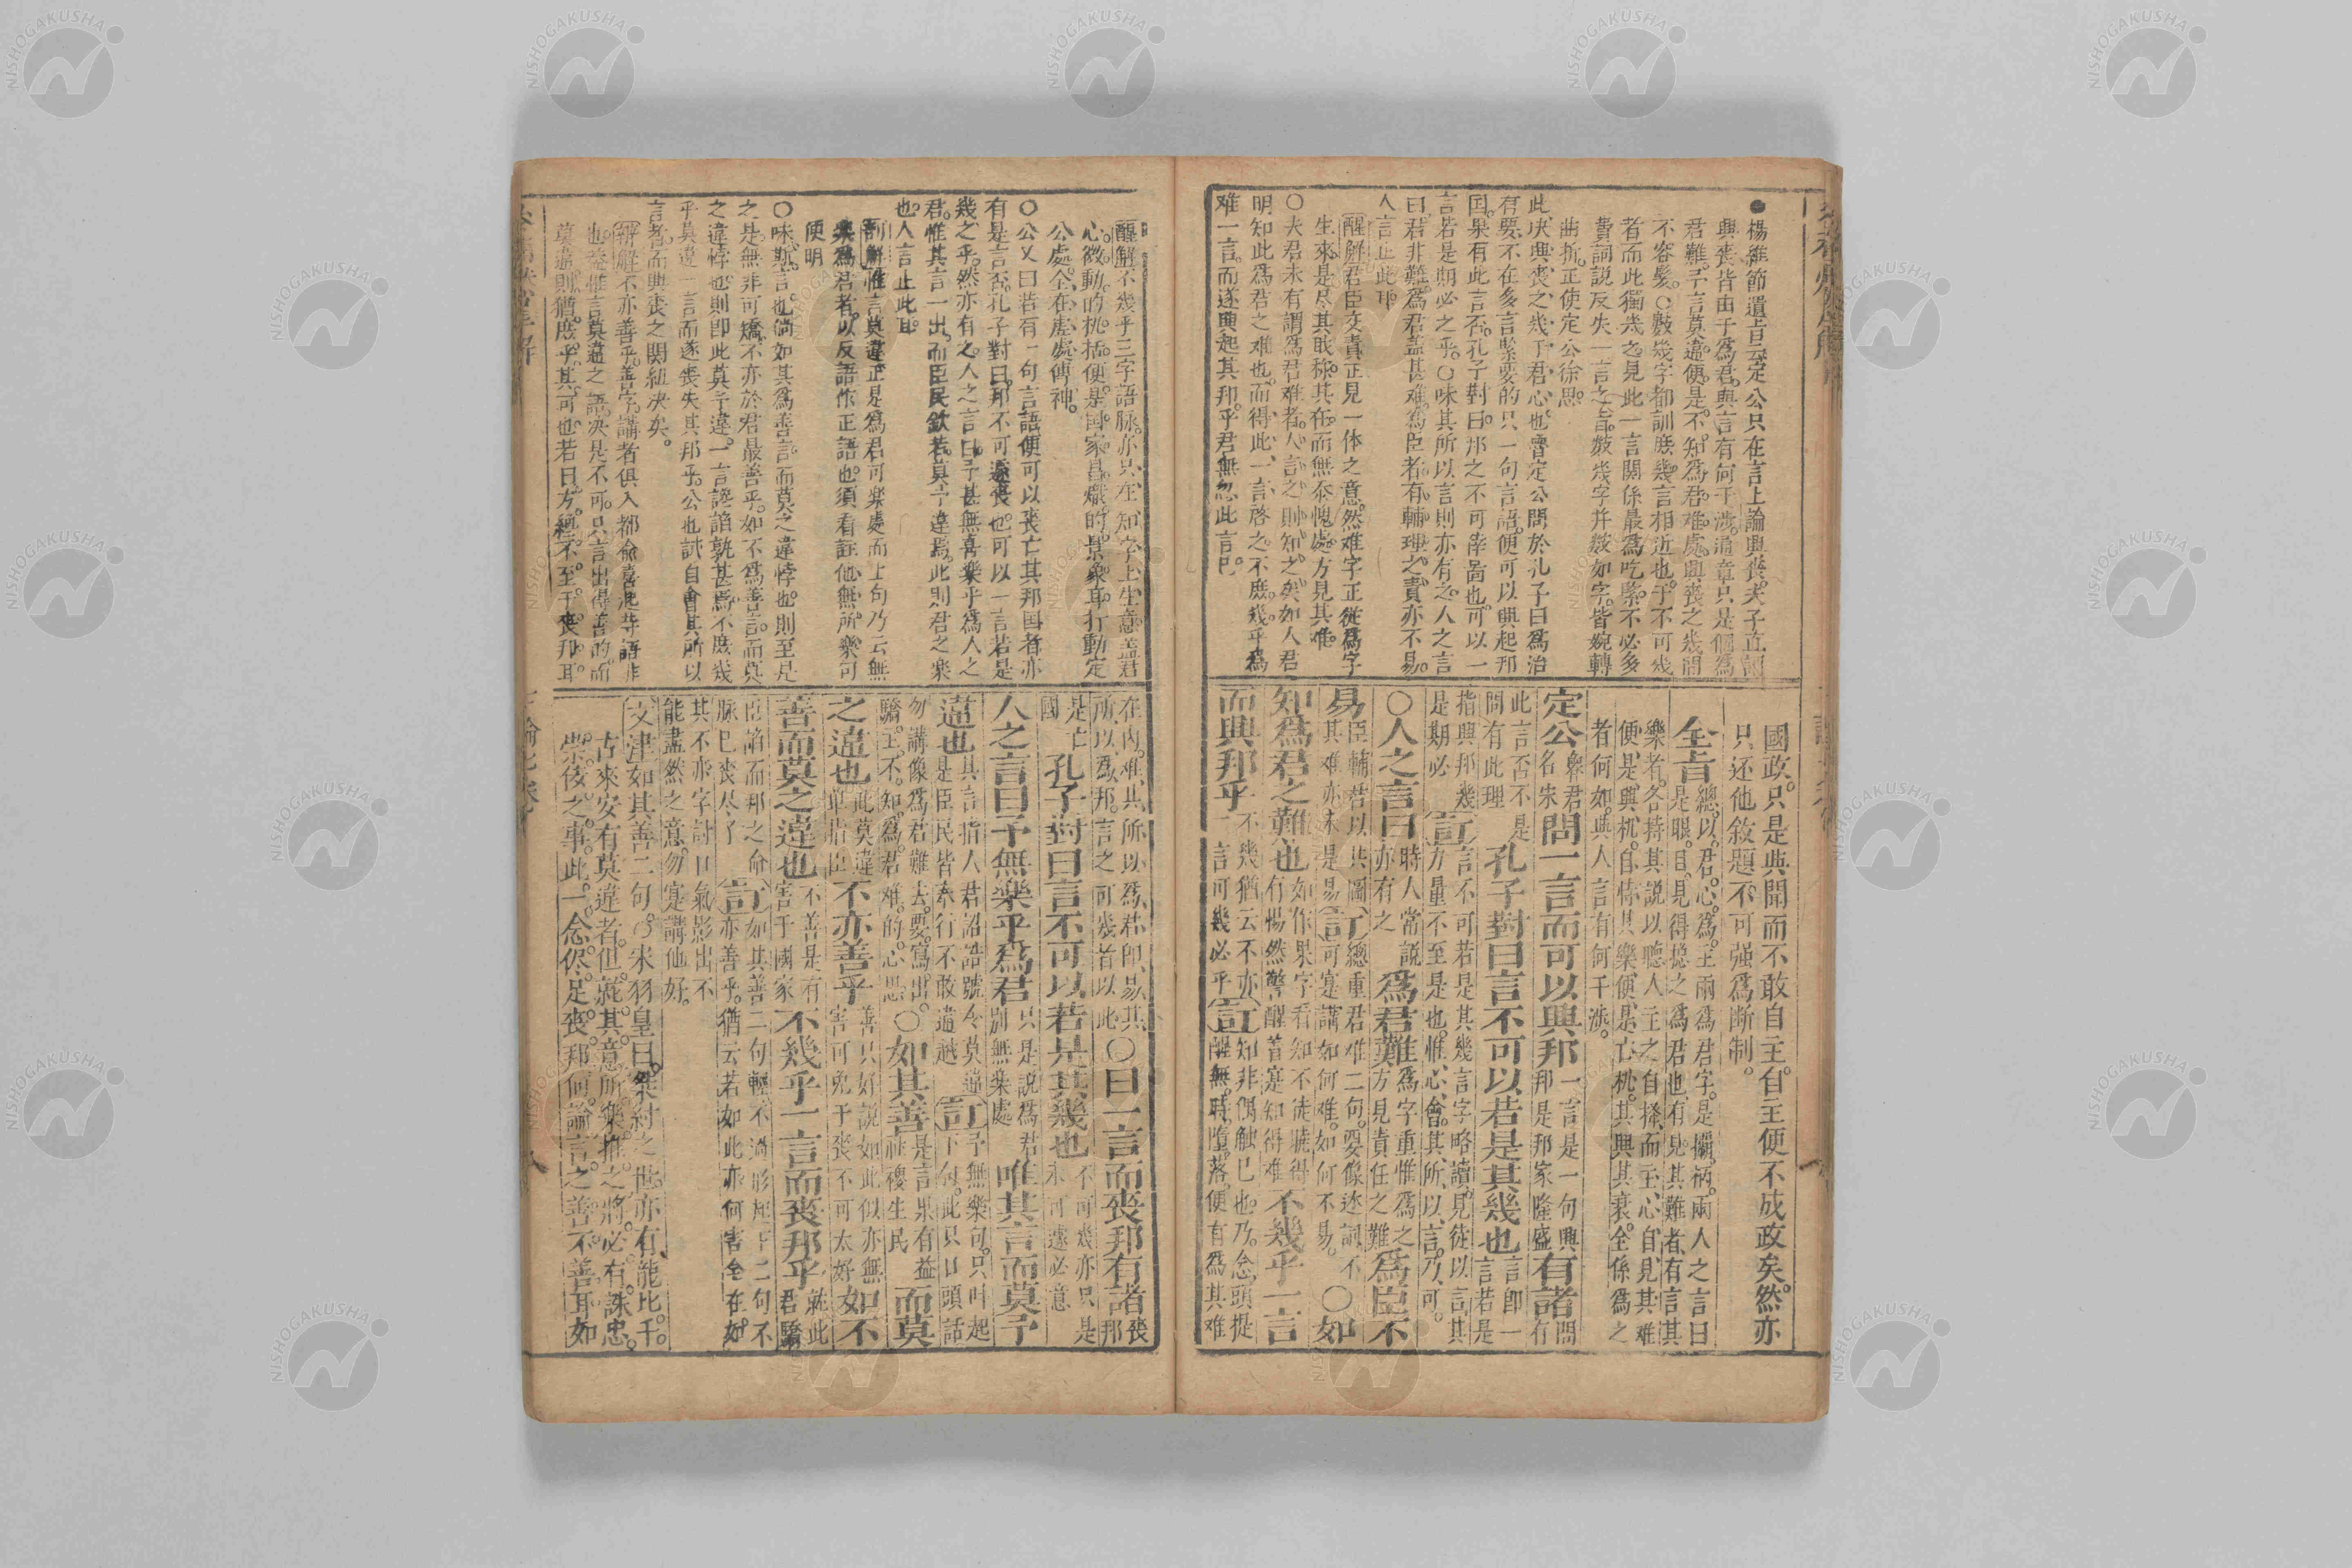 ●楊維節遺旨云定公只在言上論興喪夫子直説
興喪皆由于爲君與言有何干涉通章只是個爲
君難予言莫違便是不知爲君难處興喪之幾間
不容髮○數幾字都訓庶幾言相近也于不可幾
者而此獨幾之見此一言關係最爲吃緊不必多
費詞説反失一言之旨數幾字并數如字皆婉轉
曲折正使定公徐思
此决興喪之幾于君心也魯定公問於孔子曰爲治
有要不在多言緊要的只一句言語便可以興起邦
国果有此言否孔子對曰邦之不可倖啚也可以一
言若是期必之乎○味其所以言則亦有之人之言
曰君非難爲君蓋甚难爲臣者有輔理之責亦不易
人言止此耳
醒解君臣交責正見一体之意然难字正從爲字
生來是尽其敢称其在而無忝愧處方見其难
○夫君未有謂爲君难者人言之則知之矣如人君
明知此爲君之难也而得此一言啓之不庶幾乎爲
难一言而遂興起其邦乎君無忽此言已
國政只是與聞而不敢自主自主便不成政矣然亦
只还他敘題不可强爲斷制
全旨總以君心爲主兩爲君字是攔柄兩人之言曰
是眼目見得提之爲君也有見其難者有言其
樂者各持其説以聽人主之自擇而主心自見其难
便是興机自恃其樂便是亡机其興其衰全係爲之
者何如與人言有何干涉
定公魯君名宋問一言而可以興邦一言是一句興邦是邦家隆盛有諸問有
此言否不是問有此理孔子對曰言不可以若是其幾也言即一言若是
指興邦幾是期必訂言不可若是其幾言字略讀見徒以言其方量不至是也惟心會其所以言乃可
○人之言曰時人常説亦有之爲君難爲字重惟爲之方見責任之難爲臣不
易臣輔君以共圖其难亦未是易訂總重君难二句要像述詞不可寔講如何难如何不易○如
知爲君之難也如作果字看知不徒曉得有惕然警醒着寔知得难不幾乎一言
而興邦乎不幾猶云不亦言可幾必乎訂知非偶触已也乃念頭提醒無時墮落便有爲其难
醒解不幾乎三字語脉亦只在知字上生意盖君
心微動的机括便是國家昌熾的景象耳打動定
公處全在虛處傳神
○公又曰若有一句言語便可以喪亡其邦国者亦
有是言否孔子對曰邦不可遽喪也可以一言若是
幾之乎然亦有之人之言曰予甚無喜樂乎爲人之
君惟其言一出而臣民欽若莫予違焉此則君之樂
也人言止此耳
訂解惟言莫違正是爲君可樂處而上句乃云無
樂爲君者以反語作正語也須看註他無所樂可
便明
○味斯言也倘如其爲善言而莫之違悖也則至見
之是無非可矯不亦於君最善乎如不爲善言而莫
之違悖也則即此莫予違一言謟諂孰甚焉不庶幾
乎莫違一言而遂喪失其邦乎公也試自會其所以
言者而興喪之関紐决矣
辨解不亦善乎善字講者俱入都俞喜起等語非
也蓋惟言莫違之語决是不可只言出得善的而
莫違則猶庶乎其可也若曰方纔不至于喪邦耳
在内难其所以爲君即易其所以爲邦言之可幾者以此○曰一言而喪邦有諸喪邦
是亡國孔子對曰言不可以若是其幾也不可幾亦只是未可遽必意
人之言曰予無樂乎爲君只是説爲君別無樂處唯其言而莫予
違也其言指人君詔誥號令莫違是臣民皆奉行不敢違越訂予無樂句只叫起下句此只口頭話
勿講像爲君難去要寫出驕主不知爲君难的心思○如其善是言果有益社稷生民而莫
之違也此莫違單指臣不亦善乎善只好説如此似亦無害可免于喪不可太好如不
善而莫之違也不善是有害于國家不幾乎一言而喪邦乎就此君驕
臣諂而邦之命脉已喪尽了訂如其善二句輕不過形起下二句不亦善乎猶云若如此亦何害全在如
其不亦字討口氣影出不能盡然之意勿寔講他好
文津如其善二句○宋羽皇曰桀紂之世亦有能比干
古來安有莫違者但就其意所樂推之將必有誅忠
崇佞之事此一念侭足喪邦何論言之善不善耳如